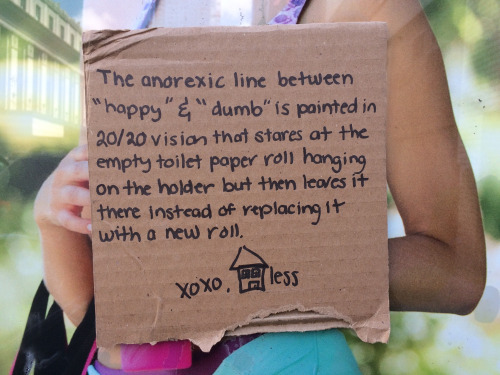 The anorexic line between
"happy" & "dumb" is painted in
20/20 vision that stares at the
empty toilet paper roll hanging
on the holder but then leaves it
there instead of replacing it
with a new roll.
xoxo, less